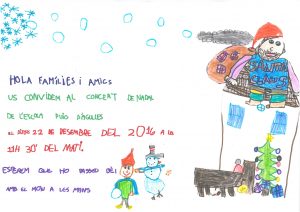 HOLA FAMÍLIES i AMICS
US CONVIDEM AL CONCERT DE NADAL
DE L'ESCOLA PUIG D'AGULLES
EL DIJOUS 22 DE DESEMBRE DEL 2016 A LA
11H 30' DEL MATÍ.
ESPEREM QUE HO PASSEU BÉ!
AMB EL MÓN A LES MANS